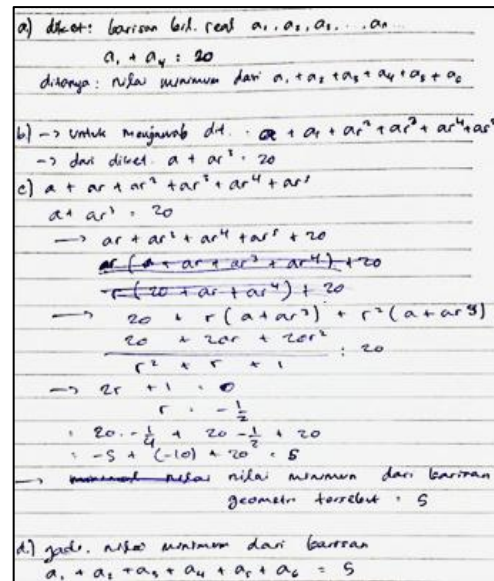 a) diket: barisan bil. real a₁, a₂, a₃, ... an...
a₁ + a₄ = 20
ditanya: nilai minimum dari a₁ + a₂ + a₃ + a₄ + a₅ + a₆
b) → untuk menjawab dit. : a + a₁ + ar² + ar³ + ar⁴ + ar⁵
→ dari diket. a + ar³ = 20
c) a + ar + ar² + ar³ + ar⁴ + ar⁵
a + ar³ = 20
→ ar + ar² + ar⁴ + ar⁵ + 20
ar (a + ar + ar³ + ar⁴) + 20
r (20 + ar + ar⁴) + 20
→ 20 + r (a + ar³) + r² (a + ar³)
20 + 20r + 20r²
r² + r + 1 : 20
→ 2r + 1 = 0
r = -1/2
= 20 · -1/4 + 20 -1/2 + 20
= -5 + (-10) + 20 = 5
→ nilai minimum dari barisan
geometri tersebut = 5
d.) jadi. nilai minimum dari barisan
a₁ + a₂ + a₃ + a₄ + a₅ + a₆ = 5